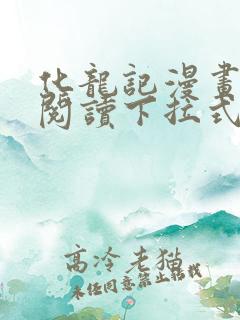 化龍記漫畫
閱讀下拉式
高冷老猫
未任同意禁止轉載